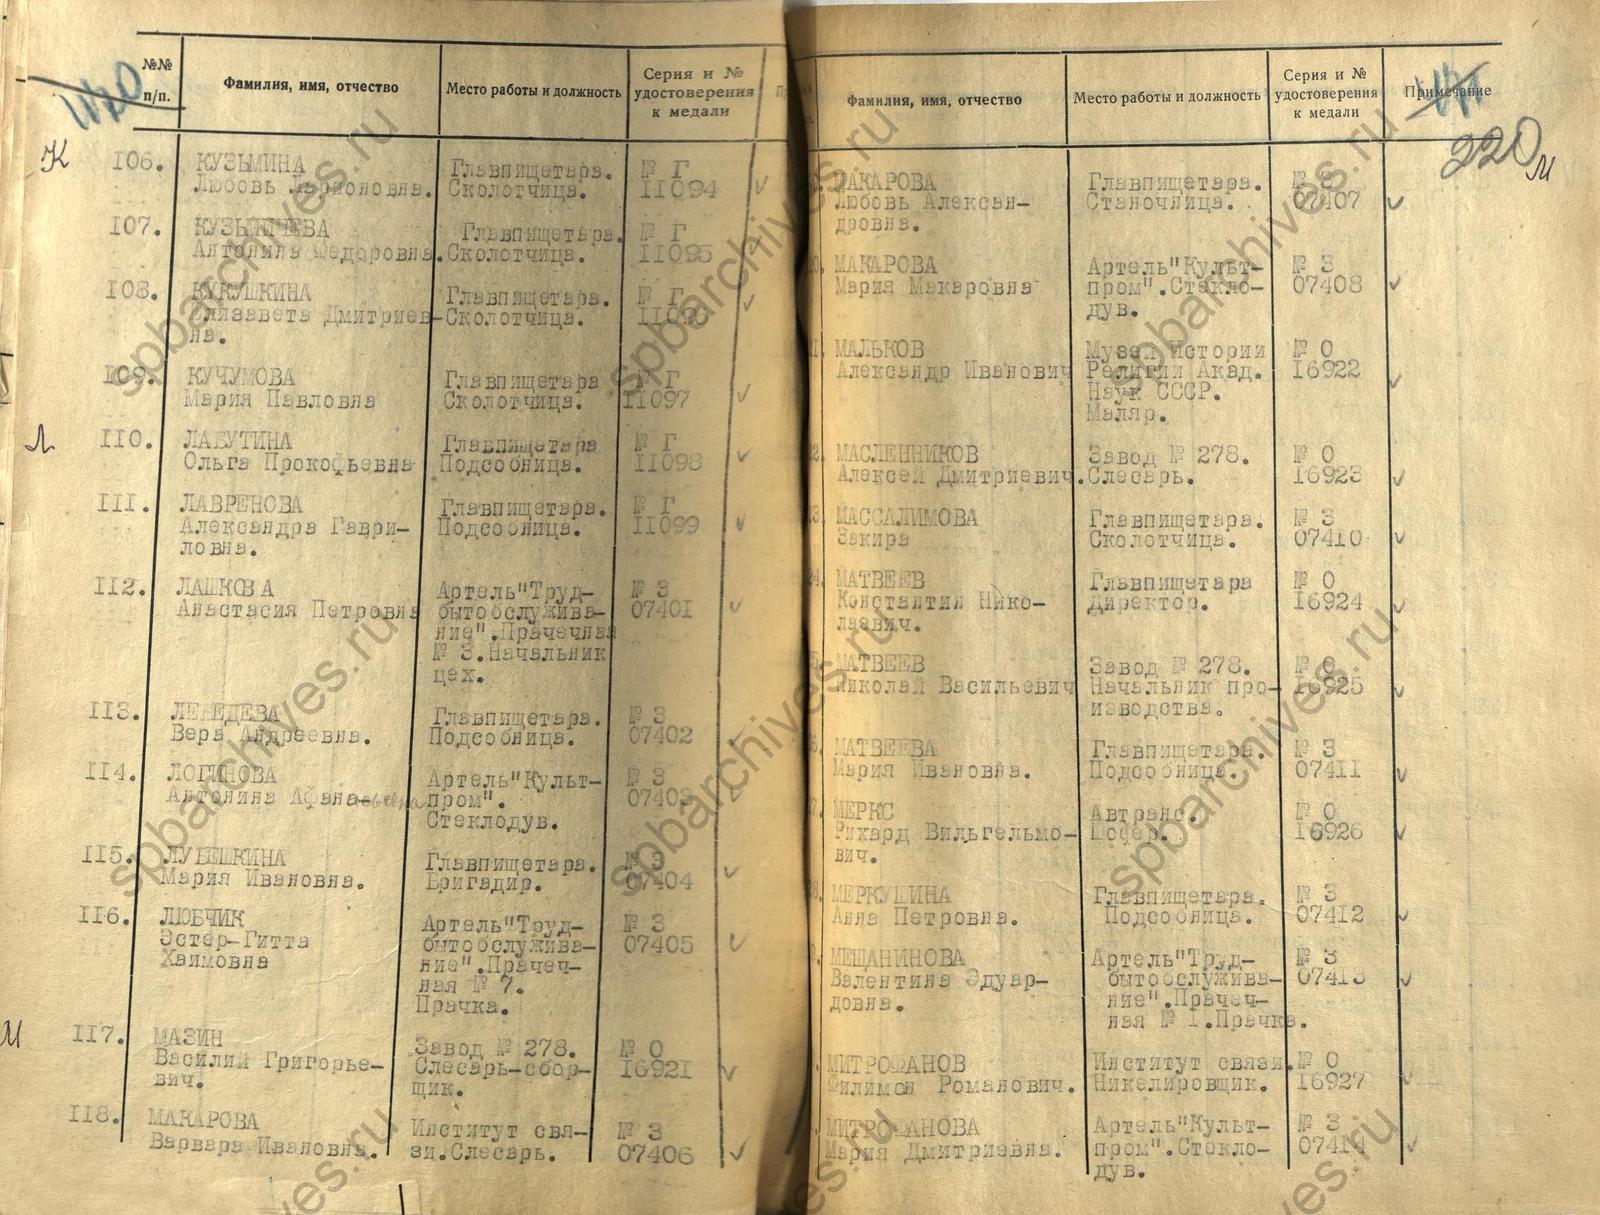 №№
п/п.
Фамилия, имя, отчество
Место работы и должность
Серия и №
удостоверения
к медали
К
106. КУЗЬМИНА Главпищетара. № Г
Любовь Ларионовна. Сколотчица. 11094
107. Главпищетара. № Г
Антонина Федоровна. Сколотчица. 11095
108. КУКУШКИНА Главпищетара. № Г
Елизавета Дмитриев- Сколотчица. 11096
на.
109. КУЧУМОВА Главпищетара № Г
Мария Павловна Сколотчица. 11097
Л
110. ЛАБУТИНА Главпищетара № Г
Ольга Прокофьевна Подсобница. 11098
111. ЛАВРЕНОВА Главпищетара. № Г
Александра Гаври- Подсобница. 11099
ловна.
112. ЛАШКОВА Артель"Труд- № 3
Анастасия Петровна бытообслужива- 07401
ние".Прачечная
№ 3.Начальник
цех.
113. ЛЕБЕДЕВА Главпищетара. № 3
Вера Андреевна. Подсобница. 07402
114. ЛОГИНОВА Артель"Культ- № 3
Антонина Афанасьевна пром". 07403
Стеклодув.
115. ЛУБЕШКИНА Главпищетара. № 3
Мария Ивановна. Бригадир. 07404
116. ЛЮБЧИК Артель"Труд- № 3
Эстер-Гитта бытообслужива- 07405
Хаимовна ние".Прачеч-
ная № 7.
Прачка.
М
117. МАЗИН Завод № 278. № 0
Василий Григорье- Слесарь-сбор- 16921
вич. щик.
118. МАКАРОВА Институт свя- № 3
Варвара Ивановна. зи.Слесарь. 07406
Фамилия, имя, отчество
Место работы и должность
Серия и №
удостоверения
к медали
Примечание
220
М
МАКАРОВА Главпищетара. № 3
Любовь Алексан- Станочница. 07407
дровна.
МАКАРОВА Артель"Культ- № 3
Мария Макаровна пром".Стекло- 07408
дув.
МАЛЬКОВ Музей Истории № 0
Александр Иванович Религии Акад. 16922
Наук СССР.
Маляр.
МАСЛЕННИКОВ Завод № 278. № 0
Алексей Дмитриевич. Слесарь. 16923
МАССАЛИМОВА Главпищетара. № 3
Закира Сколотчица. 07410
МАТВЕЕВ Главпищетара № 0
Константин Нико- Директор. 16924
лаевич.
МАТВЕЕВ Завод № 278. № 0
Николай Васильевич Начальник про- 16925
изводства.
МАТВЕЕВА Главпищетара. № 3
Мария Ивановна. Подсобница. 07411
МЕРКС Автранс. № 0
Рихард Вильгельмо- Шофер. 16926
вич.
МЕРКУШИНА Главпищетара. № 3
Анна Петровна. Подсобница. 07412
МЕЩАНИНОВА Артель"Труд- № 3
Валентина Эдуар- бытообслужива- 07413
довна. ние".Прачеч-
ная № 1.Прачка.
МИТРОФАНОВ Институт связи. № 0
Филимон Романович. Никелировщик. 16927
МИТРОФАНОВА Артель"Культ- № 3
Мария Дмитриевна. пром".Стекло- 07414
дув.
spbarchives.ru
spbarchives.ru
spbarchives.ru
spbarchives.ru
spbarchives.ru
spbarchives.ru